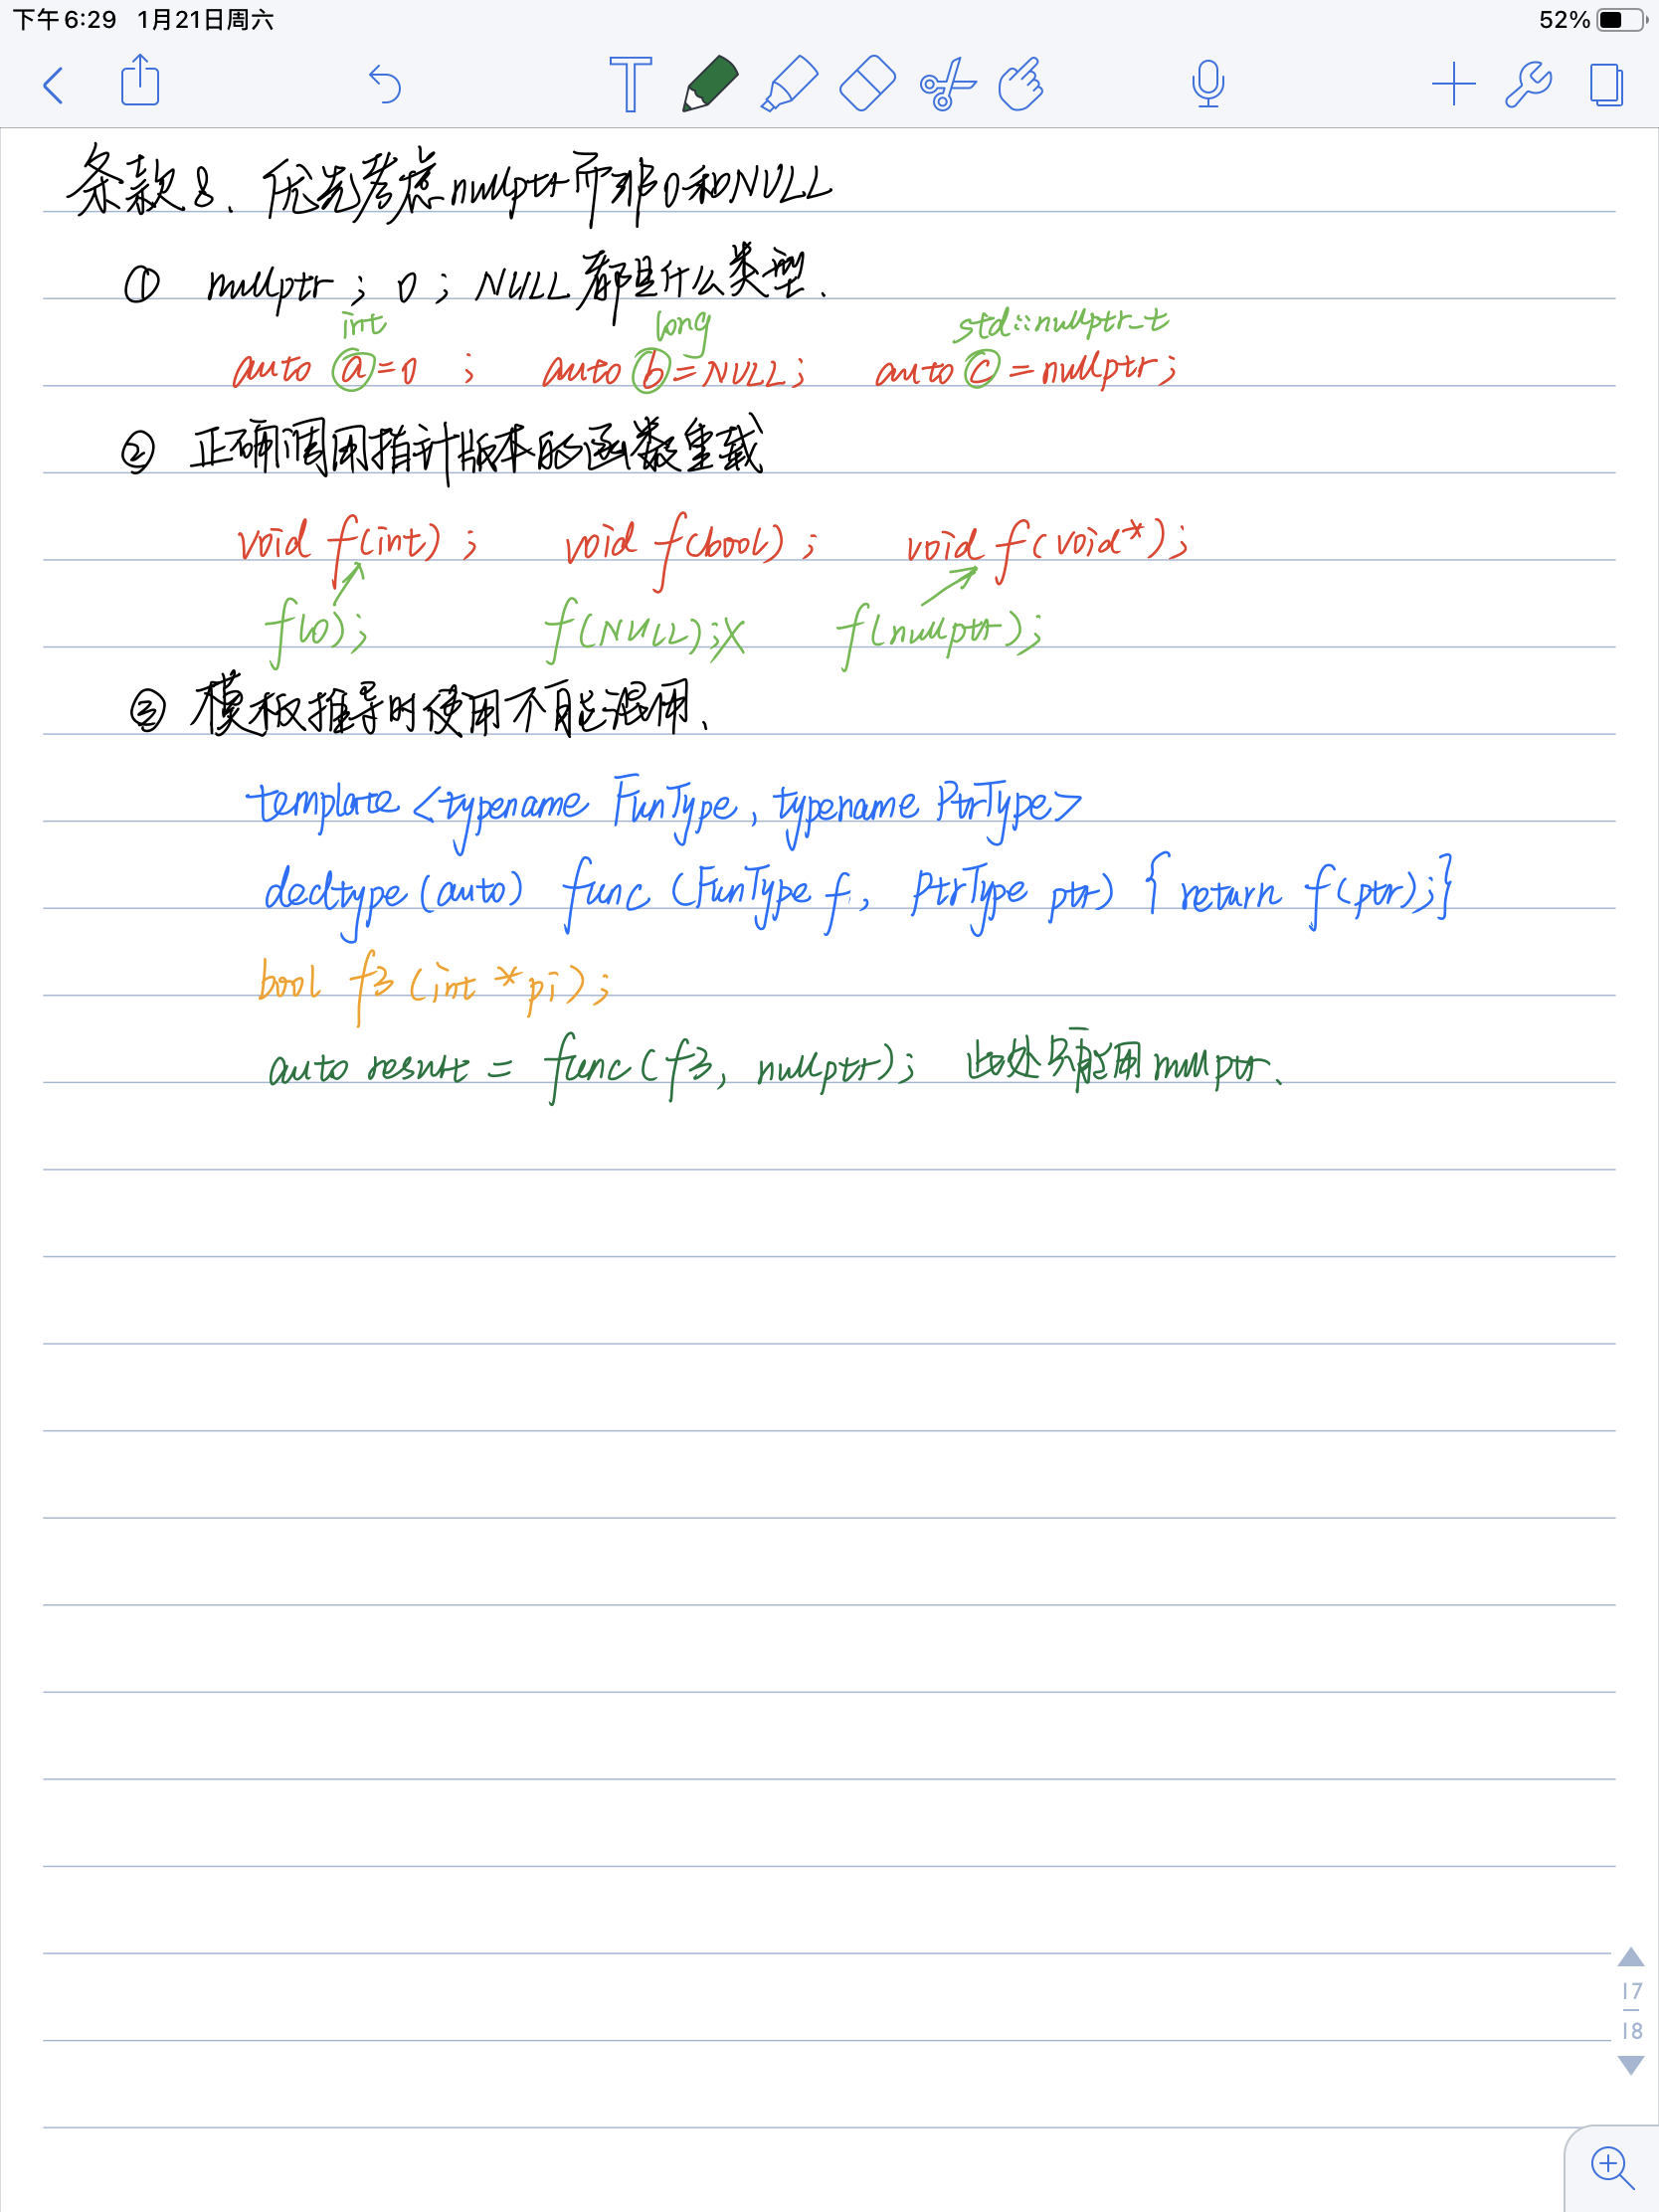 下午6:29 1月21日周六 52%
条款8、优先考虑nullptr而非0和NULL
① nullptr; 0; NULL都是什么类型.
int long std::nullptr_t
auto a=0 ; auto b=NULL; auto c=nullptr;
② 正确调用指针版本的函数重载
void f(int); void f(bool); void f(void*);
f(0); f(NULL);X f(nullptr);
③ 模板推导时使用不能混用、
template <typename FunType, typename PtrType>
decltype(auto) func (FunType f, PtrType ptr) { return f(ptr);}
bool f3(int *pi);
auto result = func(f3, nullptr); 此处只能用nullptr、
17
18